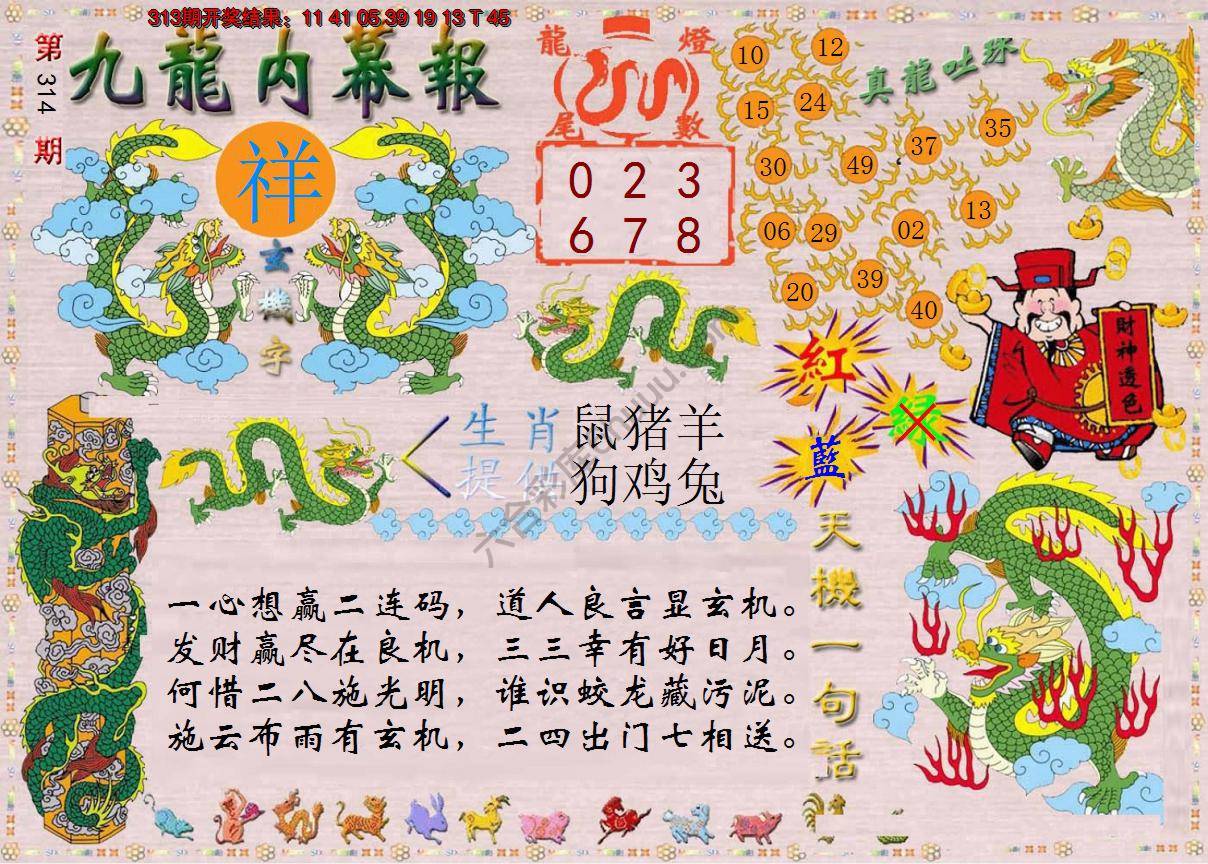 313期开奖结果：11 41 05 39 19 13 T 45
第314期
九龍内幕報
祥
玄機字
龍燈
尾數
0 2 3
6 7 8
真龍吐珠
10 12
15 24
30 49 37 35
06 29 02 13
20 39 40
財神透色
紅
绿
藍
生肖 鼠猪羊
提供 狗鸡兔
天機一句話
一心想赢二连码，道人良言显玄机。
发财赢尽在良机，三三幸有好日月。
何惜二八施光明，谁识蛟龙藏污泥。
施云布雨有玄机，二四出门七相送。